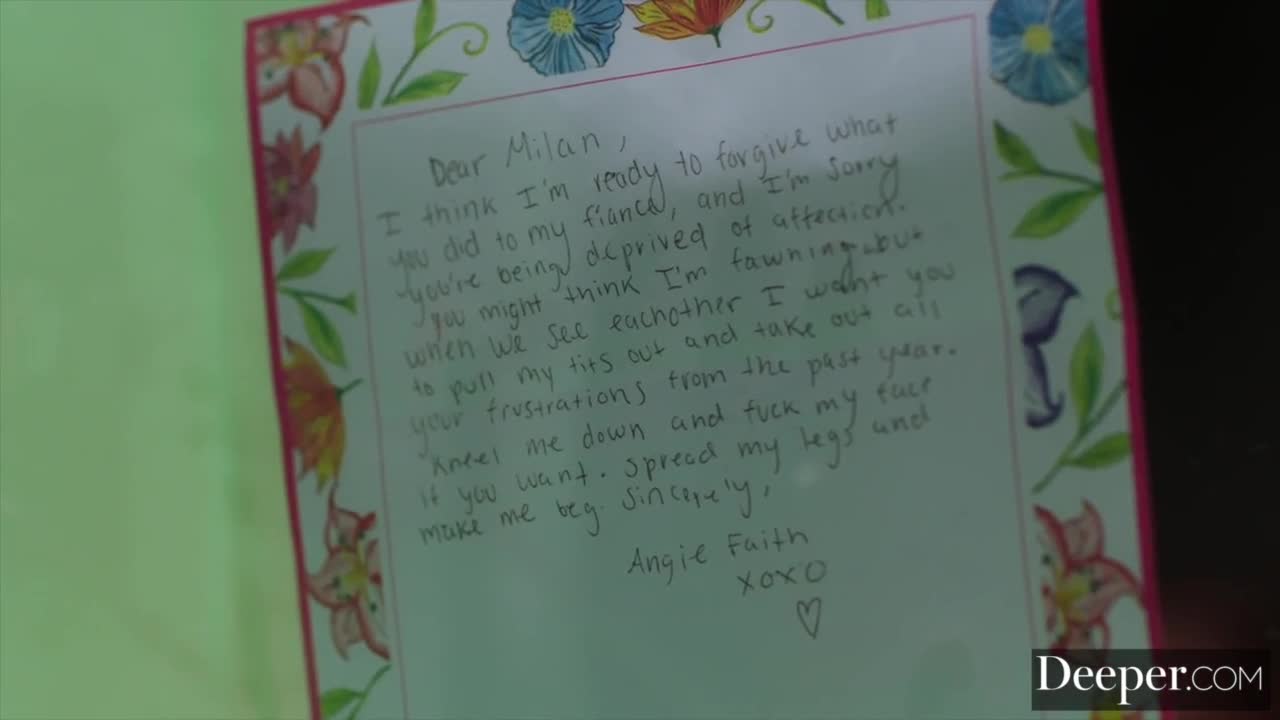 Dear Milan,
I think I'm ready to forgive what
you did to my fiancé, and I'm sorry
you're being deprived of affection.
you might think I'm fawning but
when we see eachother I want you
to pull my tits out and take out all
your frustrations from the past year.
kneel me down and fuck my face
if you want. spread my legs and
make me beg. Sincerely,
Angie Faith
XOXO
Deeper.COM